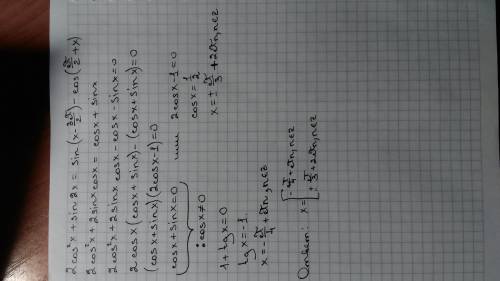 2cos²x + sin2x = sin(x - 3π/2) - cos(π/2 + x)
2cos²x + 2sinx cosx = cosx + sinx
2cos²x + 2sinx cosx - cosx - sinx = 0
2cosx (cosx + sinx) - (cosx + sinx) = 0
(cosx + sinx)(2cosx - 1) = 0
cosx + sinx = 0 или 2cosx - 1 = 0
: cosx ≠ 0 cosx = 1/2
1 + tgx = 0 x = ± π/3 + 2πn, n∈z
tgx = -1
x = - π/4 + πn, n∈z
Ответ: x = [ - π/4 + πn, n∈z
± π/3 + 2πn, n∈z